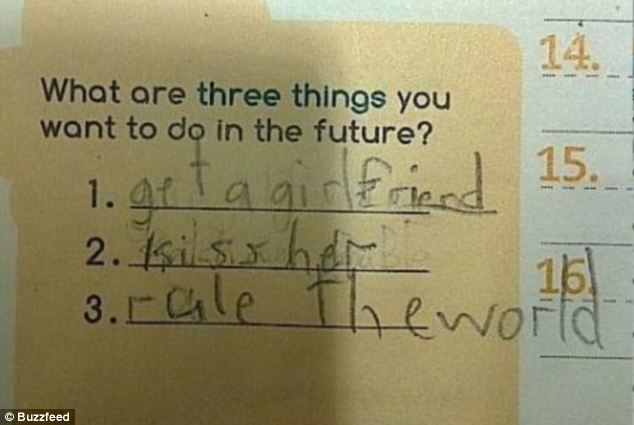 What are three things you
want to do in the future?
1. get a girlfriend
2. her
3. rule the world
14.
15.
16.
© Buzzfeed